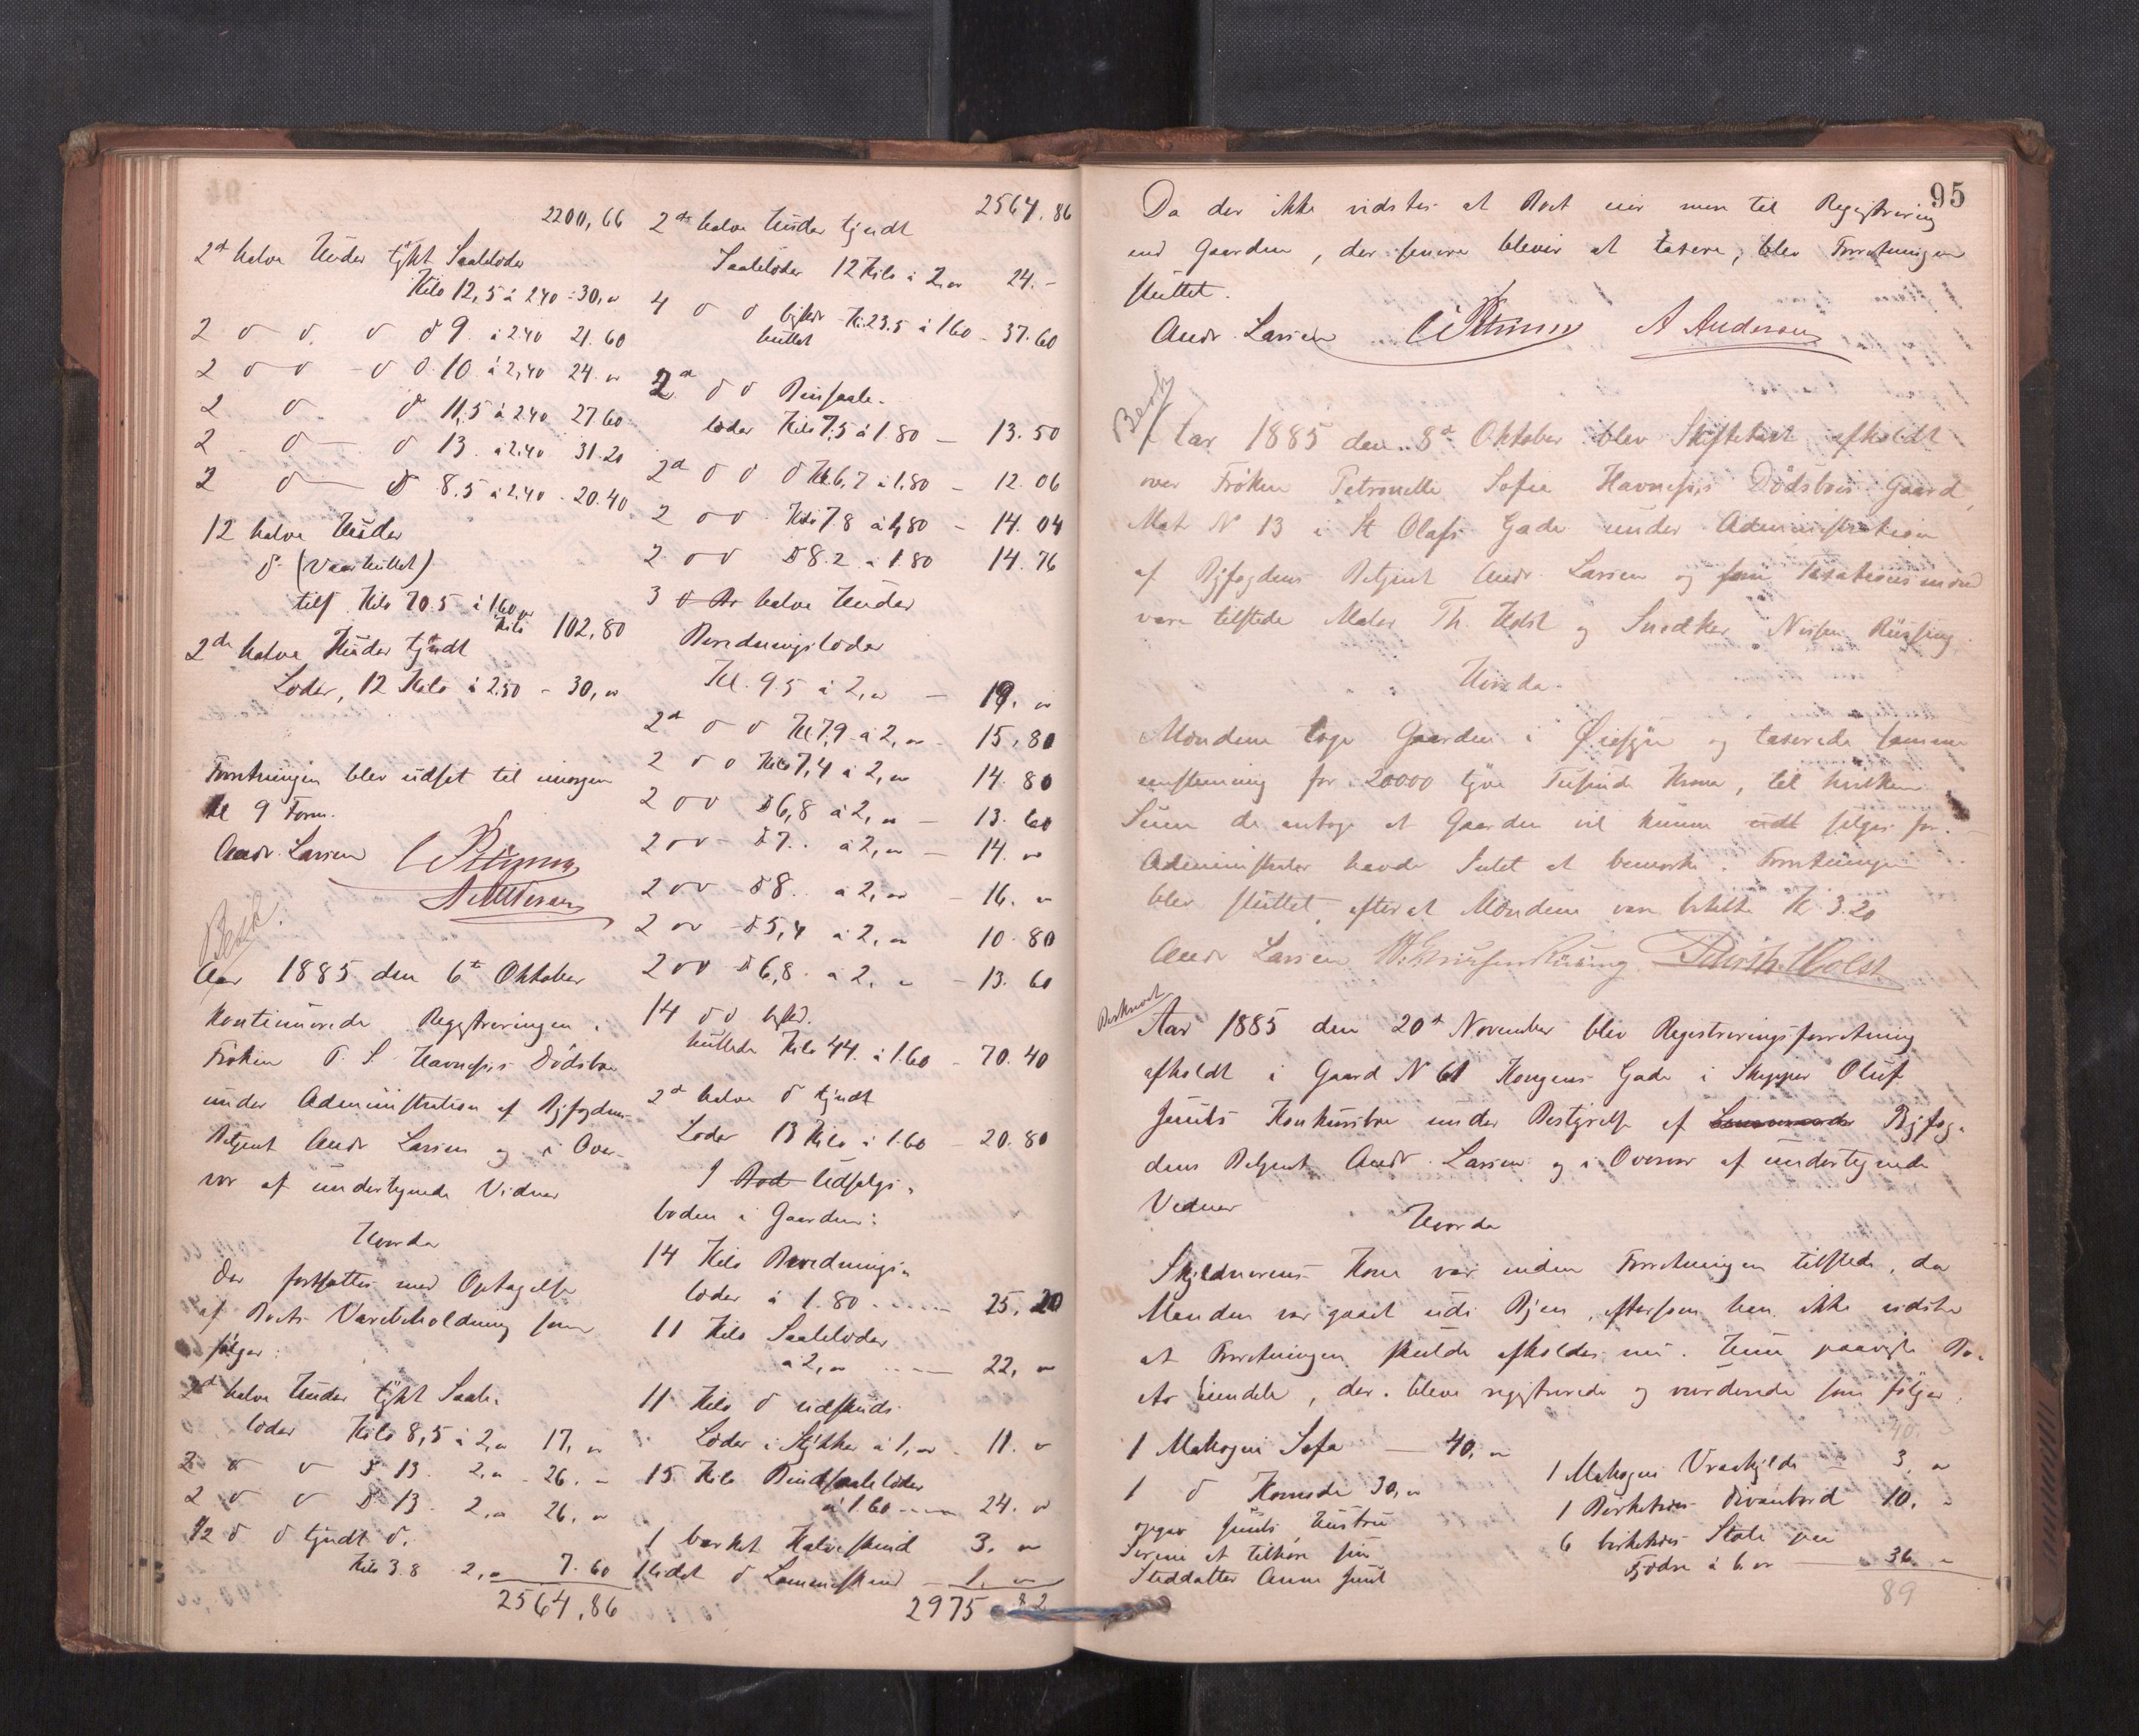 2200,66
2de halve Huder tykt Saaleläder
Kilo 12,5 à 240 = 30,"
2 " " " " 9 à 2.40 21.60
2 " " " " 10 à 2,40 24. "
2 " " 11,5 à 240 27.60
2 " " 13 à 2.40 31.20
2 " " 8.5 à 2.40 - 20.40
12 halve Huder
do (Vaarhullet)
tils Kilo 70.5 à 160
Kilo 102,80
2de halve Huder tyndt
Læder, 12 Kilo à 2.50 - 30, "
Forretningen blev udsat til imorgen
Kl 9 Form.
Andr. Larsen
A Anderson
Besk.
Aar 1885 den 6te Oktober
kontinuerede Registreringen i
Frøken P. S. Havnefis Dødsbo
under Administration af Byfogdens
Betjent Andr Larsen og i Over-
vær af undertegnede Vidner
Hvorda
Der fortsattes med Optagelse
af Boets Varebeholdning som
følger:
2de halve Huder tykt Saale-
læder Kilo 8,5 à 2," 17, "
2 " " " 13. 2," - 26. "
2 " " " 13 - 2," 26, "
1/2 " " tyndt do.
Kilo 3.8 2," 7.60
2564,86
2564.86
2de halve Huder tyndt
Saaleläder 12 Kilo à 2," 24. -
4 " " Ki. 23.5 à 160 - 37.60
hullet
2de " " Binsaale-
læder Kilo 7,5 à 1.80 - 13.50
2de " " " Kl. 6,7 à 1,80 - 12.06
2 " " Kilo 7.8 à 1,80 - 14.04
2 " " " 8.2 à 1.80 14.76
3 halve Huder
Beredningslæder
Kl. 9.5 à 2," - 19. "
2de " " Kl 7,9 à 2," - 15,80
2 " " Kilo 7,4 à 2," 14.80
2 " " " 6,8 à 2," - 13.60
2 " " " 7. à 2," - 14. "
2 " " " 8. à 2," - 16. "
2 " " " 5,4 à 2," 10.80
2 " " " 6,8 à 2," - 13.60
14 " "
hullede Kilo 44. à 1.60 - 70.40
2de halve do tyndt
Læder 13 Kilo à 1.60 - 20.80
I Bod Udsalgs-
boden i Gaarden:
14 Kilo Berednings-
læder à 1.80 - 25,20
11 Kilo Saaleläder
à 2," - 22, "
11 Kilo do udskuds
Læder i Stykker à 1," - 11. "
15 Kilo Bindsaaleläder
à 1.60 - 24. "
1 barket Kalveskind 3. "
1 lidet do Lammeskind - 1. "
2975 82
95
Da der ikke vidstes at Boet eier mere til Registrering
end Gaarden, der senere bliver at taxere, blev Forretningen
sluttet.
Andr. Larsen A Anderson
Besk
Aar 1885 den 8de Oktober blev Skiftetaxt afholdt
over Frøken Petronelle Sofie Havnefis Dødsboes Gaard,
Mat N 13 i St Olafs Gade under Administration
af Byfogdens Betjent Andr. Larsen og som Taxationsmænd
vare tilstede Maler Th. Holst og Snedker Rüssing.
Hvorda
Mændene toge Gaarden i Øiesyn og taxerede samme
enstemmig for 20000 tyve Tusinde Kroner, til hvilken
Sum de antage at Gaarden vil kunne udt sælges for.
Administrator havde Intet at bemærke. Forretningen
blev sluttet, efter at Mændene vare betalte K 3.20
Andr Larsen Holst
Beskrevet
Aar 1885 den 20de November blev Registreringsforretning
afholdt i Gaard N 61 Kongens Gade i Skipper Oluf
Juuls Konkursbo under Bestyrelse af Byfog-
dens Betjent Andr. Larsen og i Overvær af undertegnede
Vidner
Hvorda
Skyldnerens Kone var under Forretningen tilstede, da
Manden var gaaet ud i Byen, eftersom han ikke vidste
at Forretningen skulde afholdes nu. Hun paaviste Bo-
ets Eiendele, der bleve registrerede og vurderede som følger:
1 Mahogni Sofa - 40, "
1 do Komode 30,"
opgav Juuls Hustru
Serine at tilhøre sin
Steddatter Anna Juul
40.
1 Mahogni Vraahylde - 3. "
1 Birketræs Divanbord 10. "
6 birketræs Stole paa
Fjedre à 6." - 36. "
89